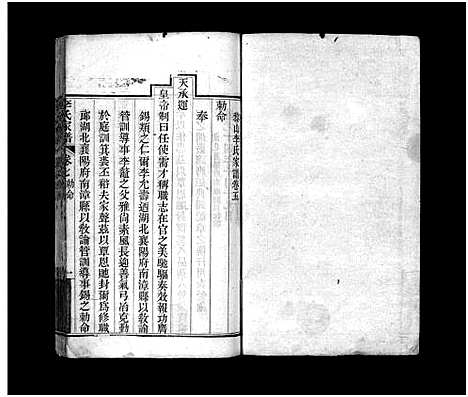 李氏家譜卷五
勅命
奉
天承運
皇帝制曰任使需才稱職志在官之美馳驅奏效報功膺
錫類之仁爾李允壽迺湖北襄陽府南漳縣以教諭
管訓導事李龍之父雅尚素風長迎善氣弓冶克勤
於庭訓箕裘丕裕夫家聲茲以覃恩貤封爾為修職
郎湖北襄陽府南漳縣以教諭管訓導事錫之勅命
李氏家譜
勅命
一